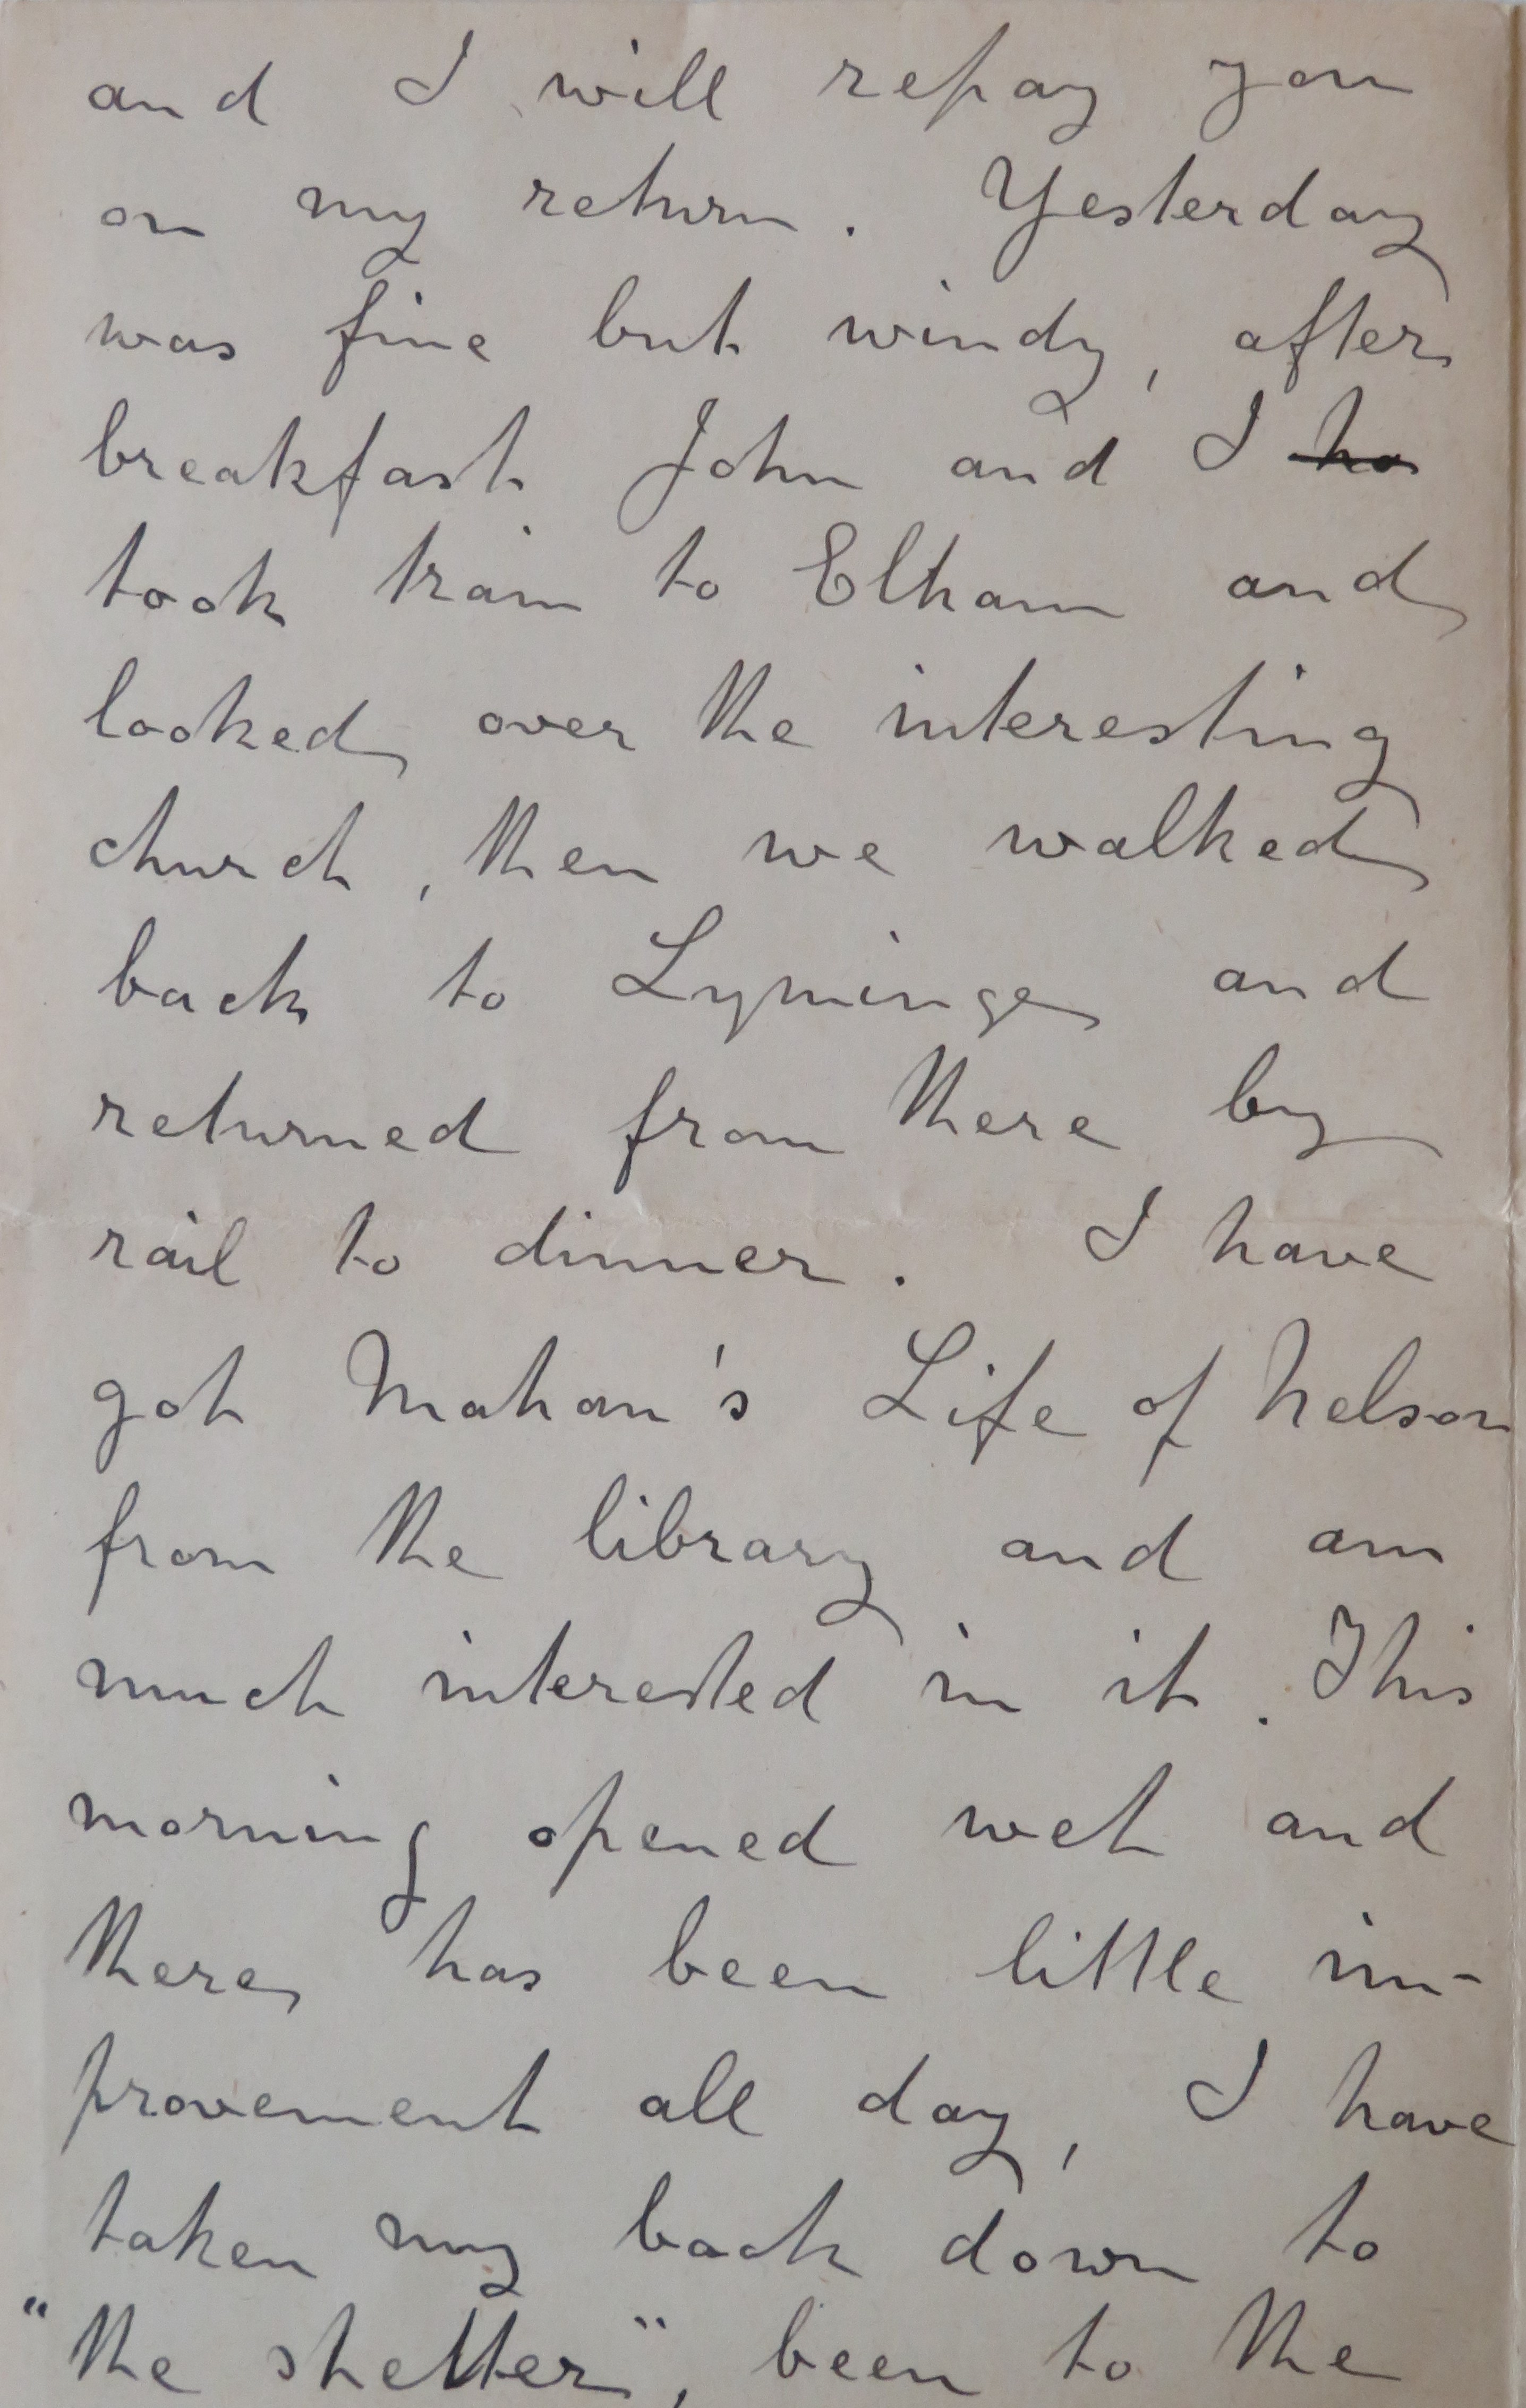 and I will repay you
on my return. Yesterday
was fine but windy, after
breakfast John and I ho
took train to Elham and
looked over the interesting
church, then we walked
back to Lyminge and
returned from there by
rail to dinner. I have
got Mahan's Life of Nelson
from the library and am
much interested in it. This
morning opened wet and
there has been little im-
provement all day, I have
taken my book down to
"the shelter", been to the